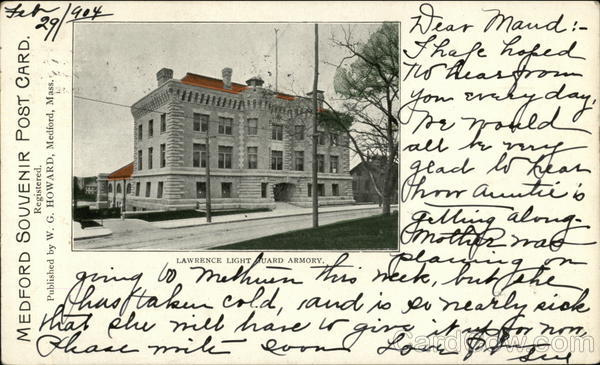 Feb 29/904
MEDFORD SOUVENIR POST CARD.
Registered.
Published by W. G. HOWARD, Medford, Mass.
LAWRENCE LIGHT GUARD ARMORY.
Dear Maud:-
I hafe hoped
to hear from
you every day.
We would
all be very
glad to hear
how Auntie is
getting along.
Mother was
planing on
going to Methuen this week, but she
has taken cold, and is so nearly sick
that she will have to give it up for now.
Please write soon Love
CardCow.com